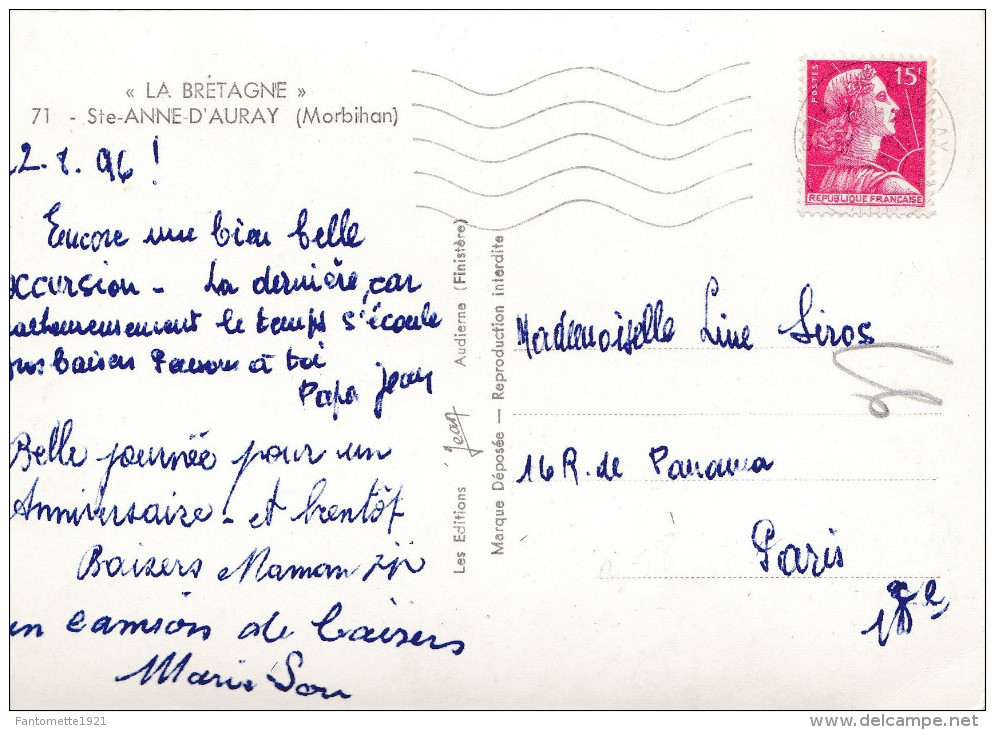 « LA BRETAGNE »
71 - Ste-ANNE-D'AURAY (Morbihan)
2.8.96!
Encore une bien belle
xcursion - La dernière, car
alheureusement le temps s'écoule
gros baisers à toi
Papa Jean
Belle journée pour un
Anniversaire - et bientôt
Baisers Maman
un camion de baisers
Marie
Les Editions Jean Audierne (Finistère)
Marque Déposée — Reproduction interdite
POSTES
15F
REPUBLIQUE FRANCAISE
Mademoiselle Line Siros
16 R. de Panama
Paris
18e
Fantomette1921
delcampe.net